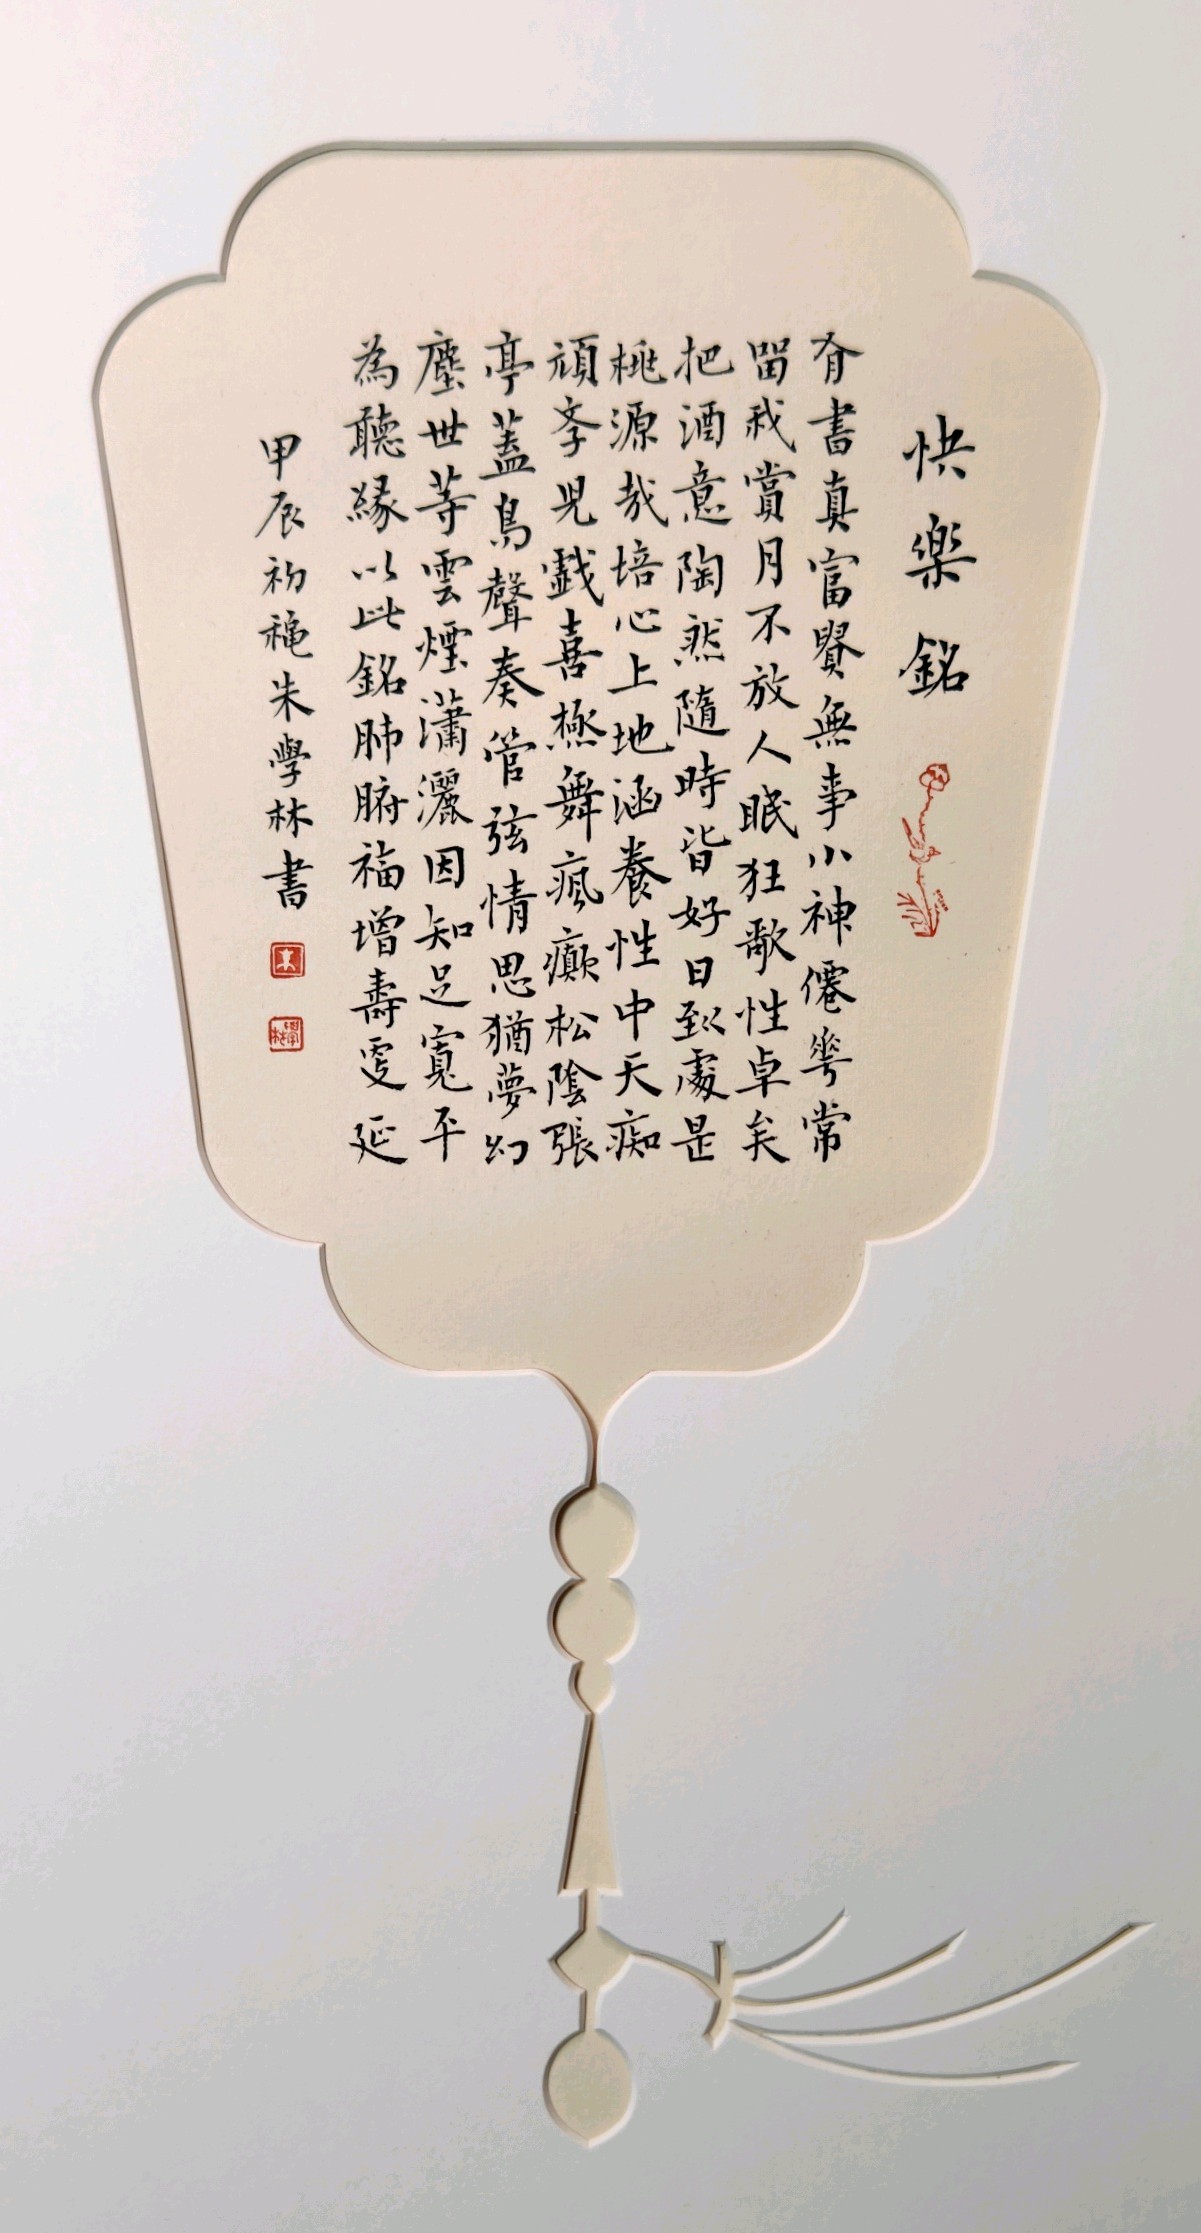 快樂銘
有書真富貴無事小神僊花常
留我賞月不放人眠狂歌性卓矣
把酒意陶然隨時皆好日到處是
桃源哉培心上地涵養性中天痴
頑孝兒戲喜極舞瘋癲松陰張
亭蓋鳥聲奏管弦情思猶夢幻
塵世等雲煙瀟灑因知足寬平
為聽緣以此銘肺腑福增壽更延
甲辰初穐朱學林書
朱
學林